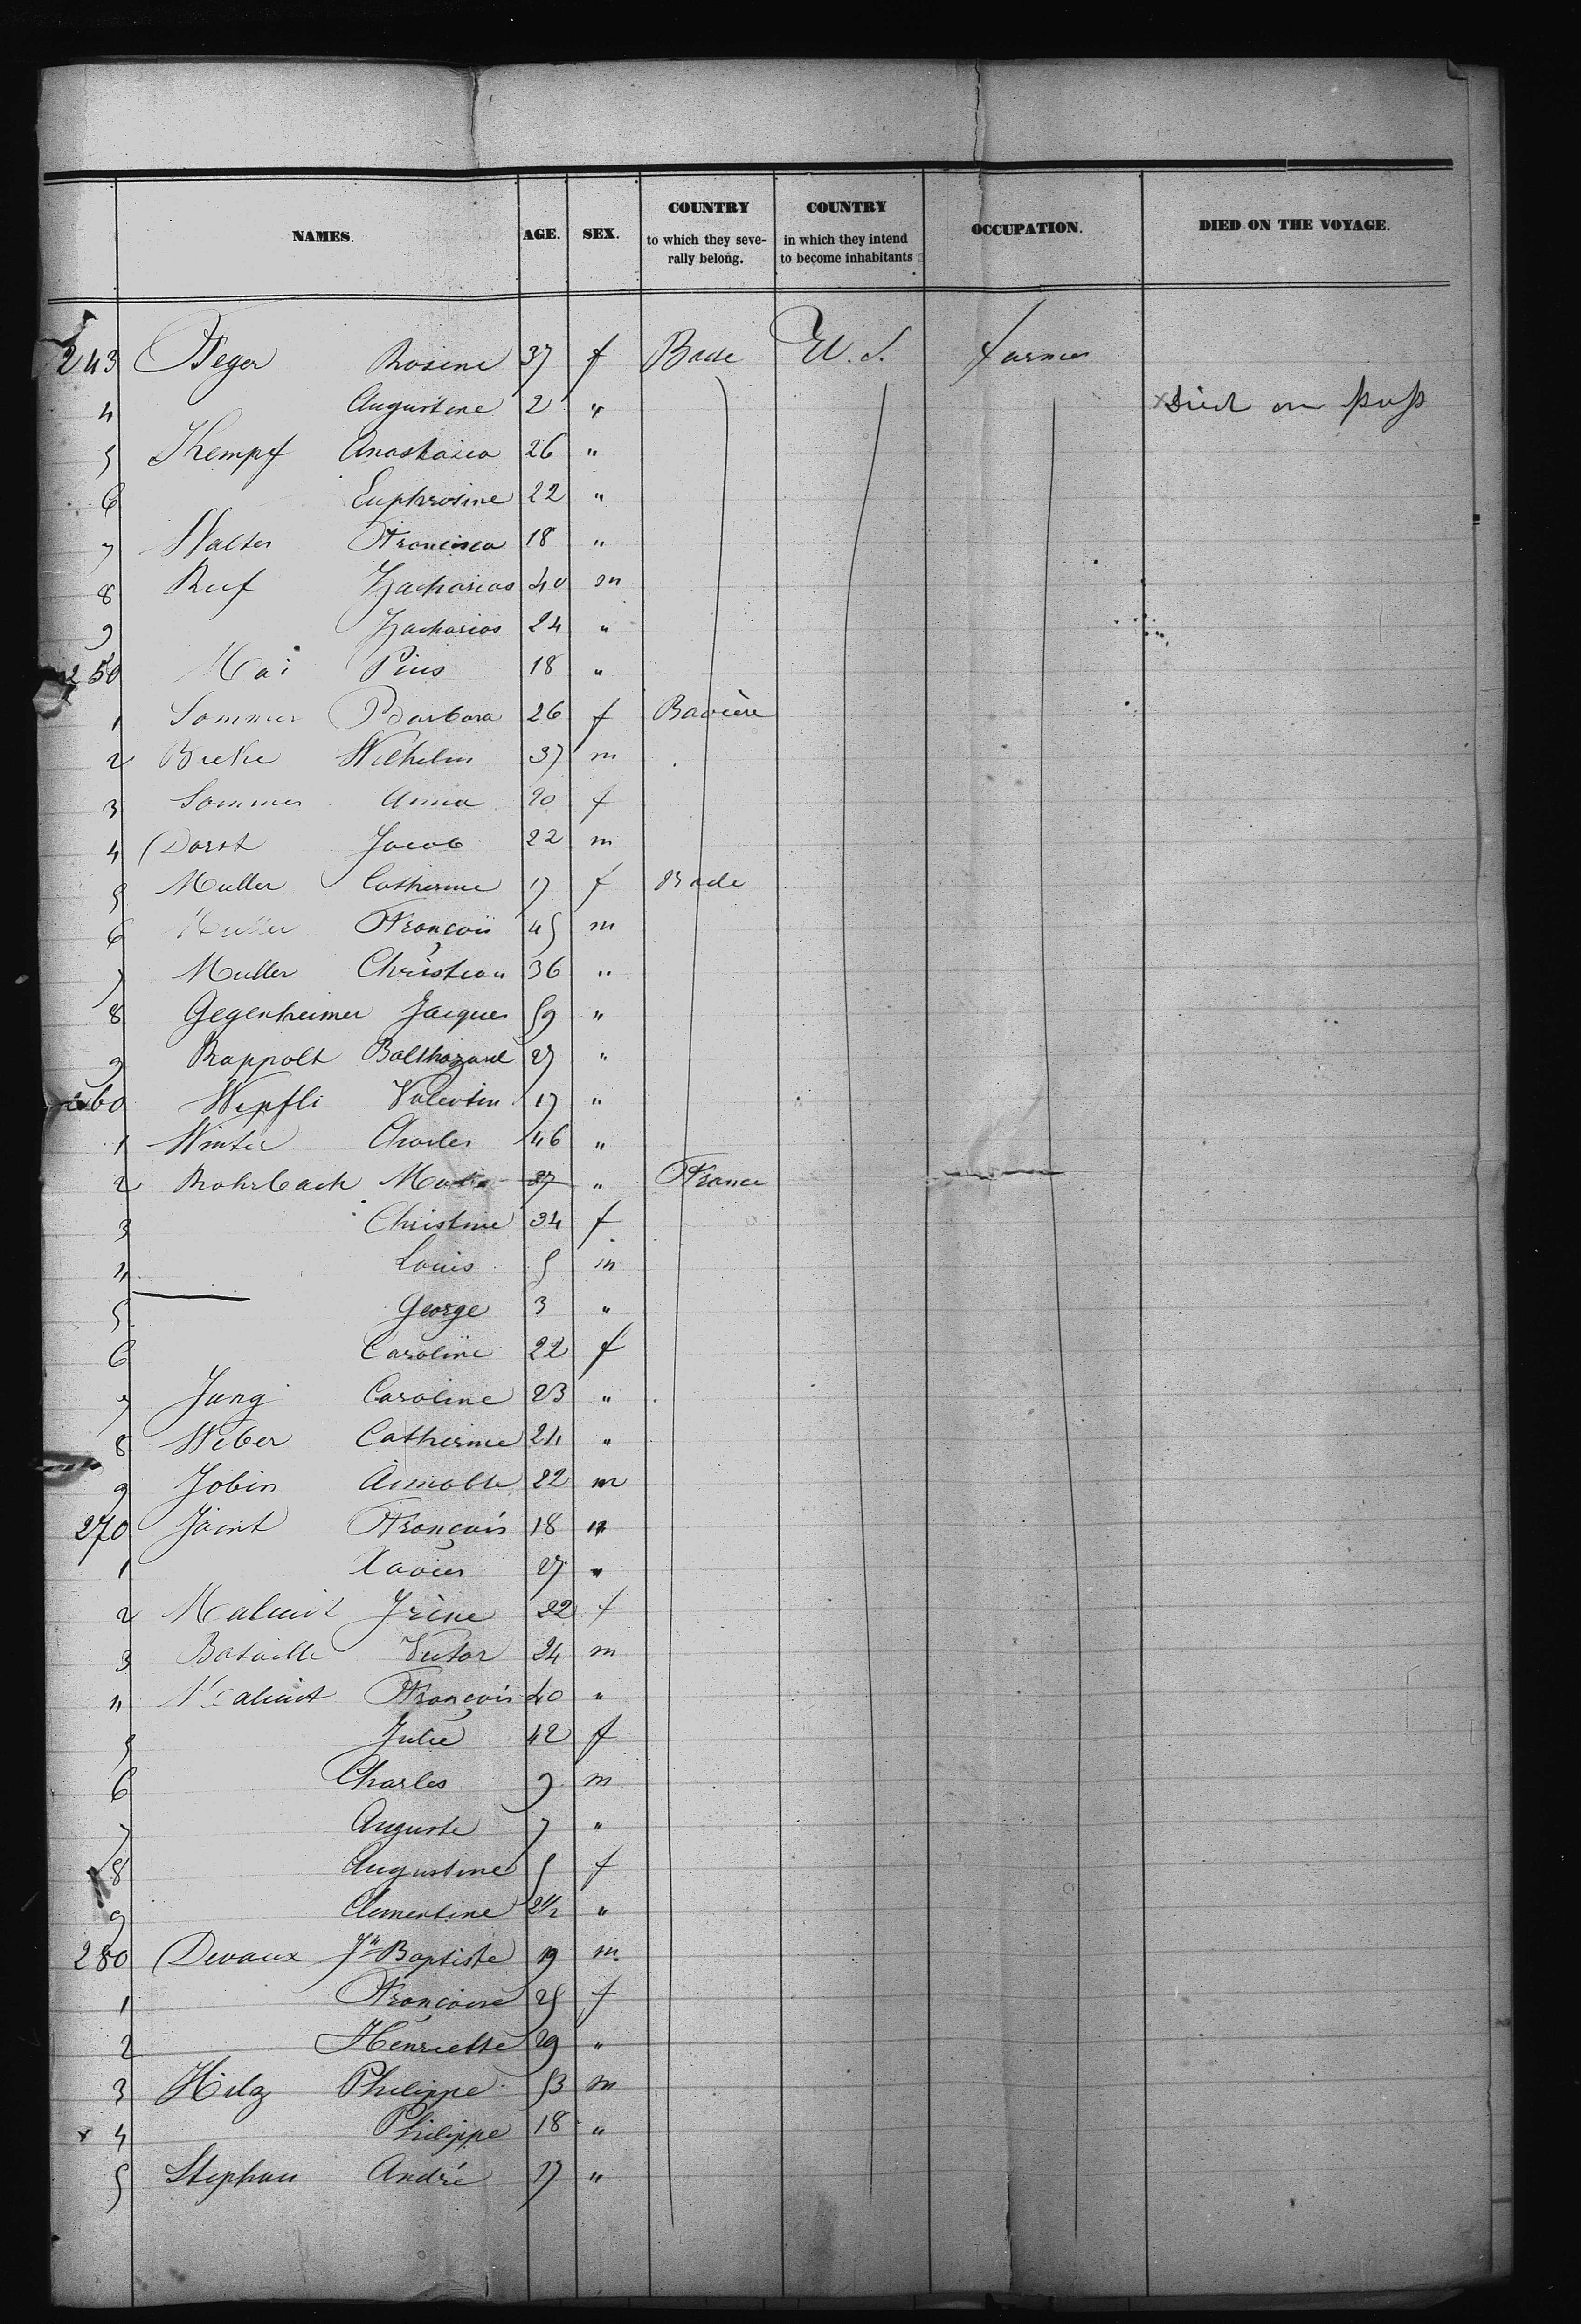 NAMES. AGE. SEX. COUNTRY to which they seve-rally belong. COUNTRY in which they intend to become inhabitants OCCUPATION. DIED ON THE VOYAGE.
243 Feger Rosine 37 f Bade U. S. farmer
4 Augustine 2 " Died on pass
5 Kempf Anastasia 26 "
6 Euphrosine 22 "
7 Walter Francisca 18 "
8 Ruf Zacharias 40 m
9 Zacharias 24 "
250 Mai Pius 18 "
1 Sommer Barbara 26 f Bavière
2 Wilhelm 37 m
3 Sommer Anna 20 f
4 Dorst Jacob 22 m
5 Muller Catherine 17 f Bade
6 Muller François 45 m
7 Muller Christian 36 "
8 Gegenheimer Jacques 59 "
9 Rappolt Balthazard 27 "
260 Wipfli Valentin 17 "
1 Winter Charles 46 "
2 Rohrbach 37 " France
3 Christine 34 f
4 Louis 5 m
5 George 3 "
6 Caroline 22 f
7 Jung Caroline 23 "
8 Weber Catherine 24 "
9 Jobin 22 m
270 François 18 "
1 Xavier 27 "
2 Irène 22 f
3 Bataille Victor 24 m
4 François 40 "
5 Julie 42 f
6 Charles 9 m
7 Auguste 7 "
8 Augustine 5 f
9 Clementine 2½ "
280 Devaux Jn Baptiste 19 m
1 Françoise 25 f
2 Henriette 29 "
3 Hilz Philippe 53 m
x 4 Philippe 18 "
5 Stephan André 17 "